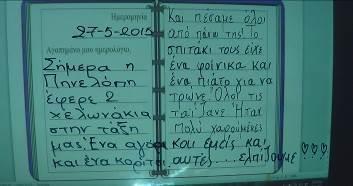 Ημερομηνία
27-5-2015
Αγαπημένο μου ημερολόγιο,
Σήμερα η
Πηνελόπη
έφερε 2
χελωνάκια
στην τάξη
μας. Ένα αγόρι
και ένα κορίτσι.
Και πέσαμε όλοι
από πάνω της! Το
σπιτάκι τους είχε
ένα φοίνικα και
ένα πιάτο για να
τρώνε. Όλοι τις
ταΐζανε. Ήταν
πολύ χαρούμενες
και εμείς και
αυτές....ελπίζουμε